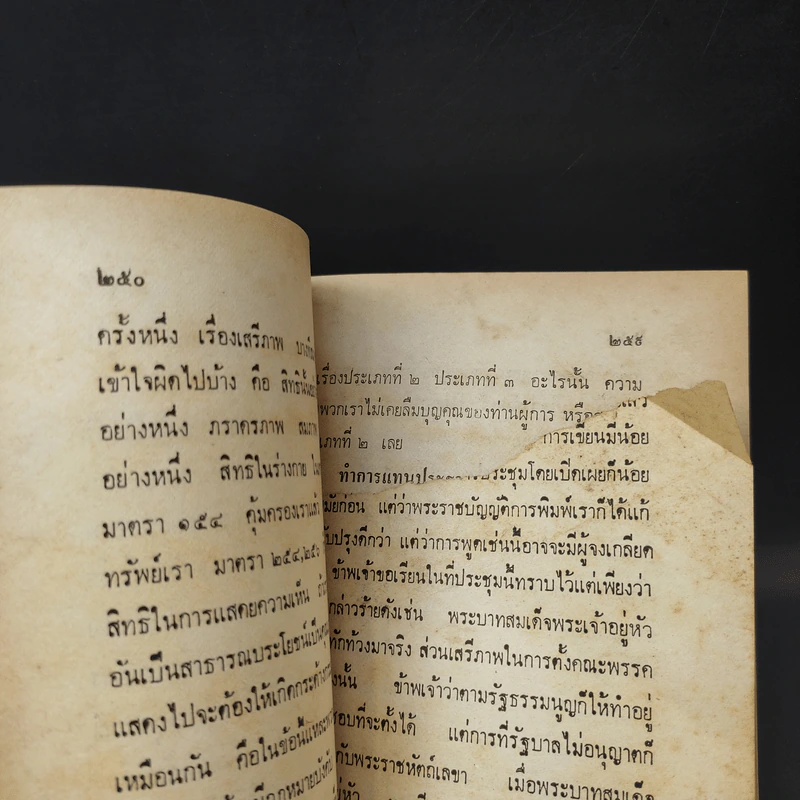 ๒๕๐
ครั้งหนึ่ง เรื่องเสรีภาพ
เข้าใจผิดไปบ้าง คือ
อย่างหนึ่ง ภราดรภาพ
อย่างหนึ่ง สิทธิในร่างกาย
มาตรา ๑๕๔ คุ้มครองเราแล้ว
ทรัพย์เรา มาตรา ๒๕๔,๒๕๖
สิทธิในการแสดงความเห็น
อันเป็นสาธารณประโยชน์
แสดงไปจะต้องให้เกิดกระด้าง
เหมือนกัน คือในข้อนี้
๒๕๕
เรื่องประเภทที่ ๒ ประเภทที่ ๓ อะไรนั้น ความ
พวกเราไม่เคยลืมบุญคุณของท่านผู้การ
เภทที่ ๒ เลย การเขียนมีน้อย
ทำการแทน ประชุมโดยเปิดเผยก็น้อย
มัยก่อน แต่ว่าพระราชบัญญัติการพิมพ์เราก็ได้แก้
ับปรุงดีกว่า แต่ว่าการพูดเช่นนี้อาจจะมีผู้จงเกลียด
ข้าพเจ้าขอเรียนในที่ประชุมนี้ทราบไว้แต่เพียงว่า
กล่าวร้ายดังเช่น พระบาทสมเด็จพระเจ้าอยู่หัว
ทักท้วงมาจริง ส่วนเสรีภาพในการตั้งคณะพรรค
งนั้น ข้าพเจ้าว่าตามรัฐธรรมนูญก็ให้ทำอยู่
ชอบที่จะตั้งได้ แต่การที่รัฐบาลไม่อนุญาตก็
กับพระราชหัตถ์เลขา เมื่อพระบาทสมเด็จ